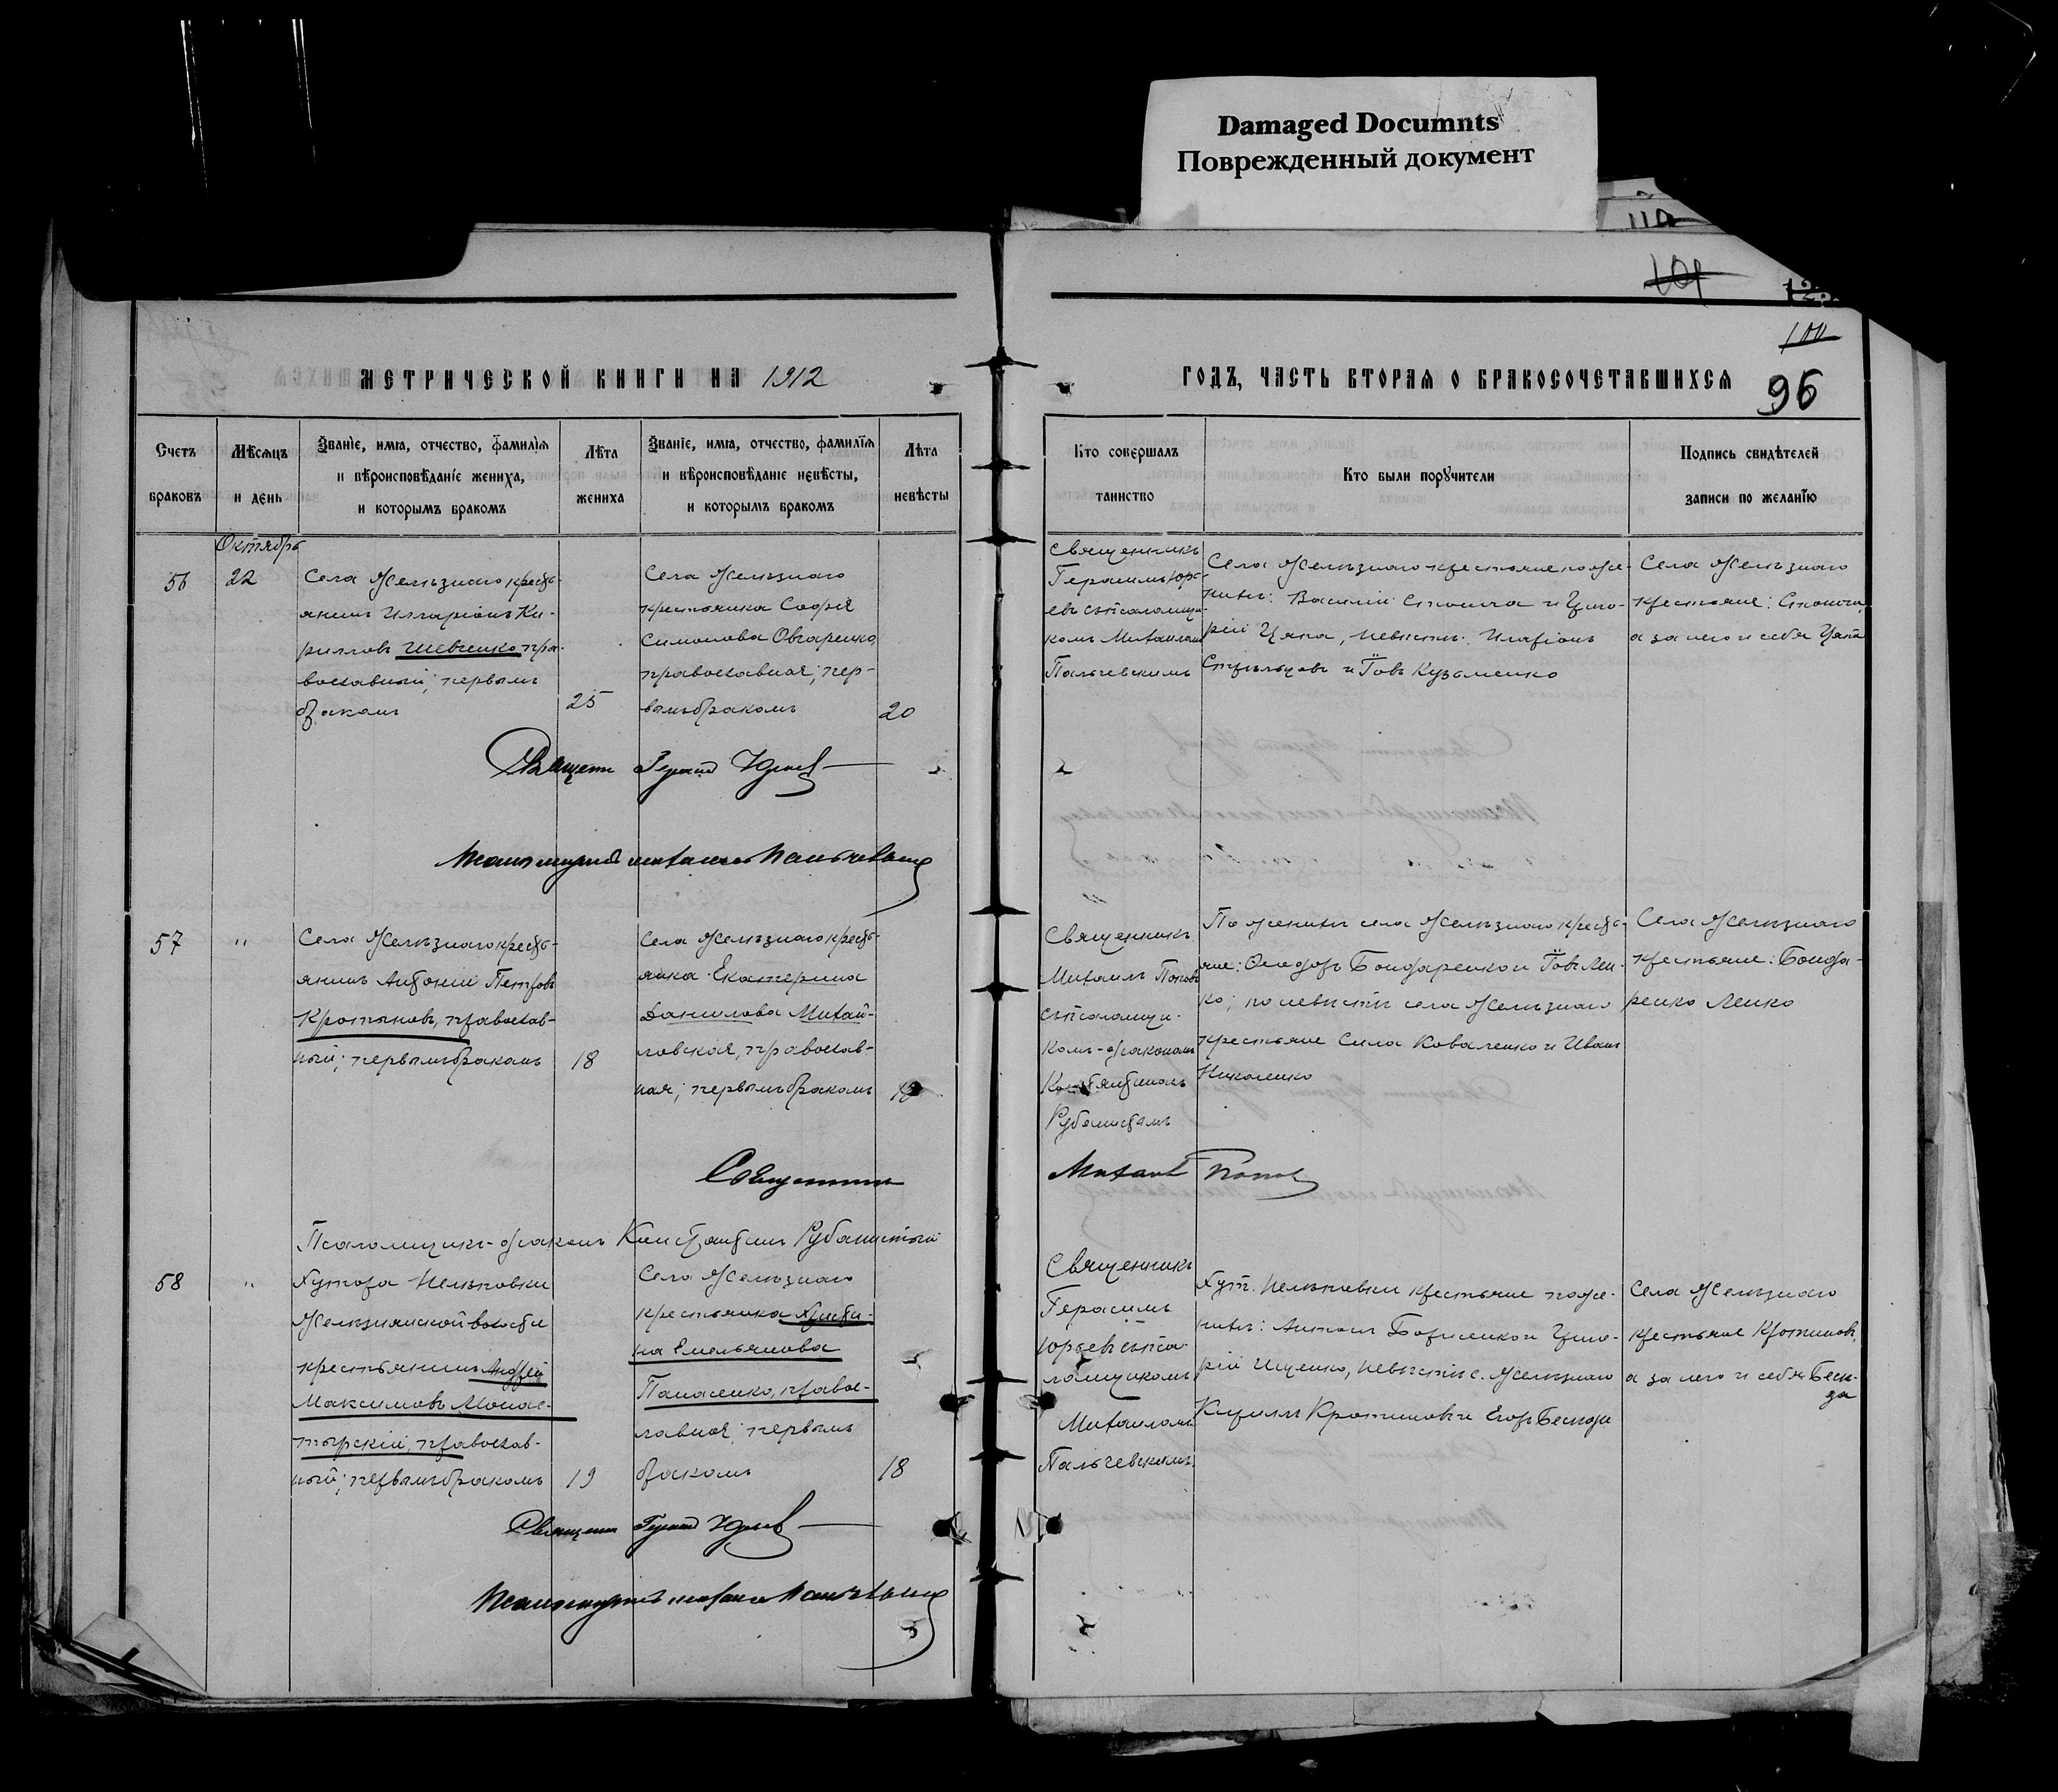 Damaged Documnts
Поврежденный документ
101
100
96
МЕТРИЧЕСКОЙ КНИГИ НА 1912
ГОДЪ, ЧАСТЬ ВТОРАЯ О БРАКОСОЧЕТАВШИХСЯ
Счетъ браковъ
Мѣсяцъ и день
Званіе, имя, отчество, фамилія
и вѣроисповѣданіе жениха,
и которымъ бракомъ
Лѣта жениха
Званіе, имя, отчество, фамилія
и вѣроисповѣданіе невѣсты,
и которымъ бракомъ
Лѣта невѣсты
Кто совершалъ
таинство
Кто были поручители
Подпись свидѣтелей
записи по желанію
Октябрь
56
22
Села Желѣзнаго кресть-
янинъ Илларіонъ Ки-
рилловъ Шевченко, пра-
вославный; первымъ
бракомъ
25
Села Желѣзнаго
крестьянка Софія
Симонова Овчаренко,
православная; пер-
вымъ бракомъ
20
Священникъ
Герасимъ Юрь-
евъ съ псаломщи-
комъ Михаиломъ
Пальчевскимъ
Села Желѣзнаго крестьяне по же-
нихѣ: Василій и Григо-
рій Цяпа, невѣстѣ: Иларіонъ
Стрѣльцовъ и Іовъ Кузьменко
Села Желѣзнаго
крестьяне:
а за него и себя Цяпа
Священн Герасим Юрьев
Псаломщикъ Михаилъ Пальчевскій
57
"
Села Желѣзнаго кресть-
янинъ Антоній Петровъ
Кротыновъ, православ-
ный; первымъ бракомъ
18
Села Желѣзнаго кресть-
янка Екатерина
Данилова Михай-
ловская, православ-
ная; первымъ бракомъ
Священникъ
Михаилъ Поповъ
съ псаломщи-
комъ-діакономъ
Константиномъ
Рубанистымъ
По женихѣ села Желѣзнаго кресть-
яне: Ѳеодоръ Бондаренко и Іовъ Лен-
ко; по невѣстѣ села Желѣзнаго
крестьяне Сила Коваленко и Иванъ
Николенко
Села Желѣзнаго
крестьяне: Бонда-
ренко Ленко
Священникъ Михаил Попов
Псаломщикъ-діаконъ Константинъ Рубанистый
58
"
Хутора Нелѣповки
Желѣзнянской волости
крестьянинъ Андрей
Максимовъ Монас-
тырскій, православ-
ный; первымъ бракомъ
19
Села Желѣзнаго
крестьянка Христи-
на Емельянова
Панасенко, правос-
лавная; первымъ
бракомъ
18
Священникъ
Герасимъ
Юрьевъ съ пса-
ломщикомъ
Михаиломъ
Пальчевскимъ
Хут. Нелѣповки крестьяне по же-
нихѣ: Антонъ Борисенко и Григо-
рій Ищенко, невѣстѣ с. Желѣзнаго
Кириллъ Кротиновъ и Егоръ
Села Желѣзнаго
крестьяне Кротиновъ,
а за него и себя
Священн Герасим Юрьев
Псаломщикъ Михаилъ Пальчевскій